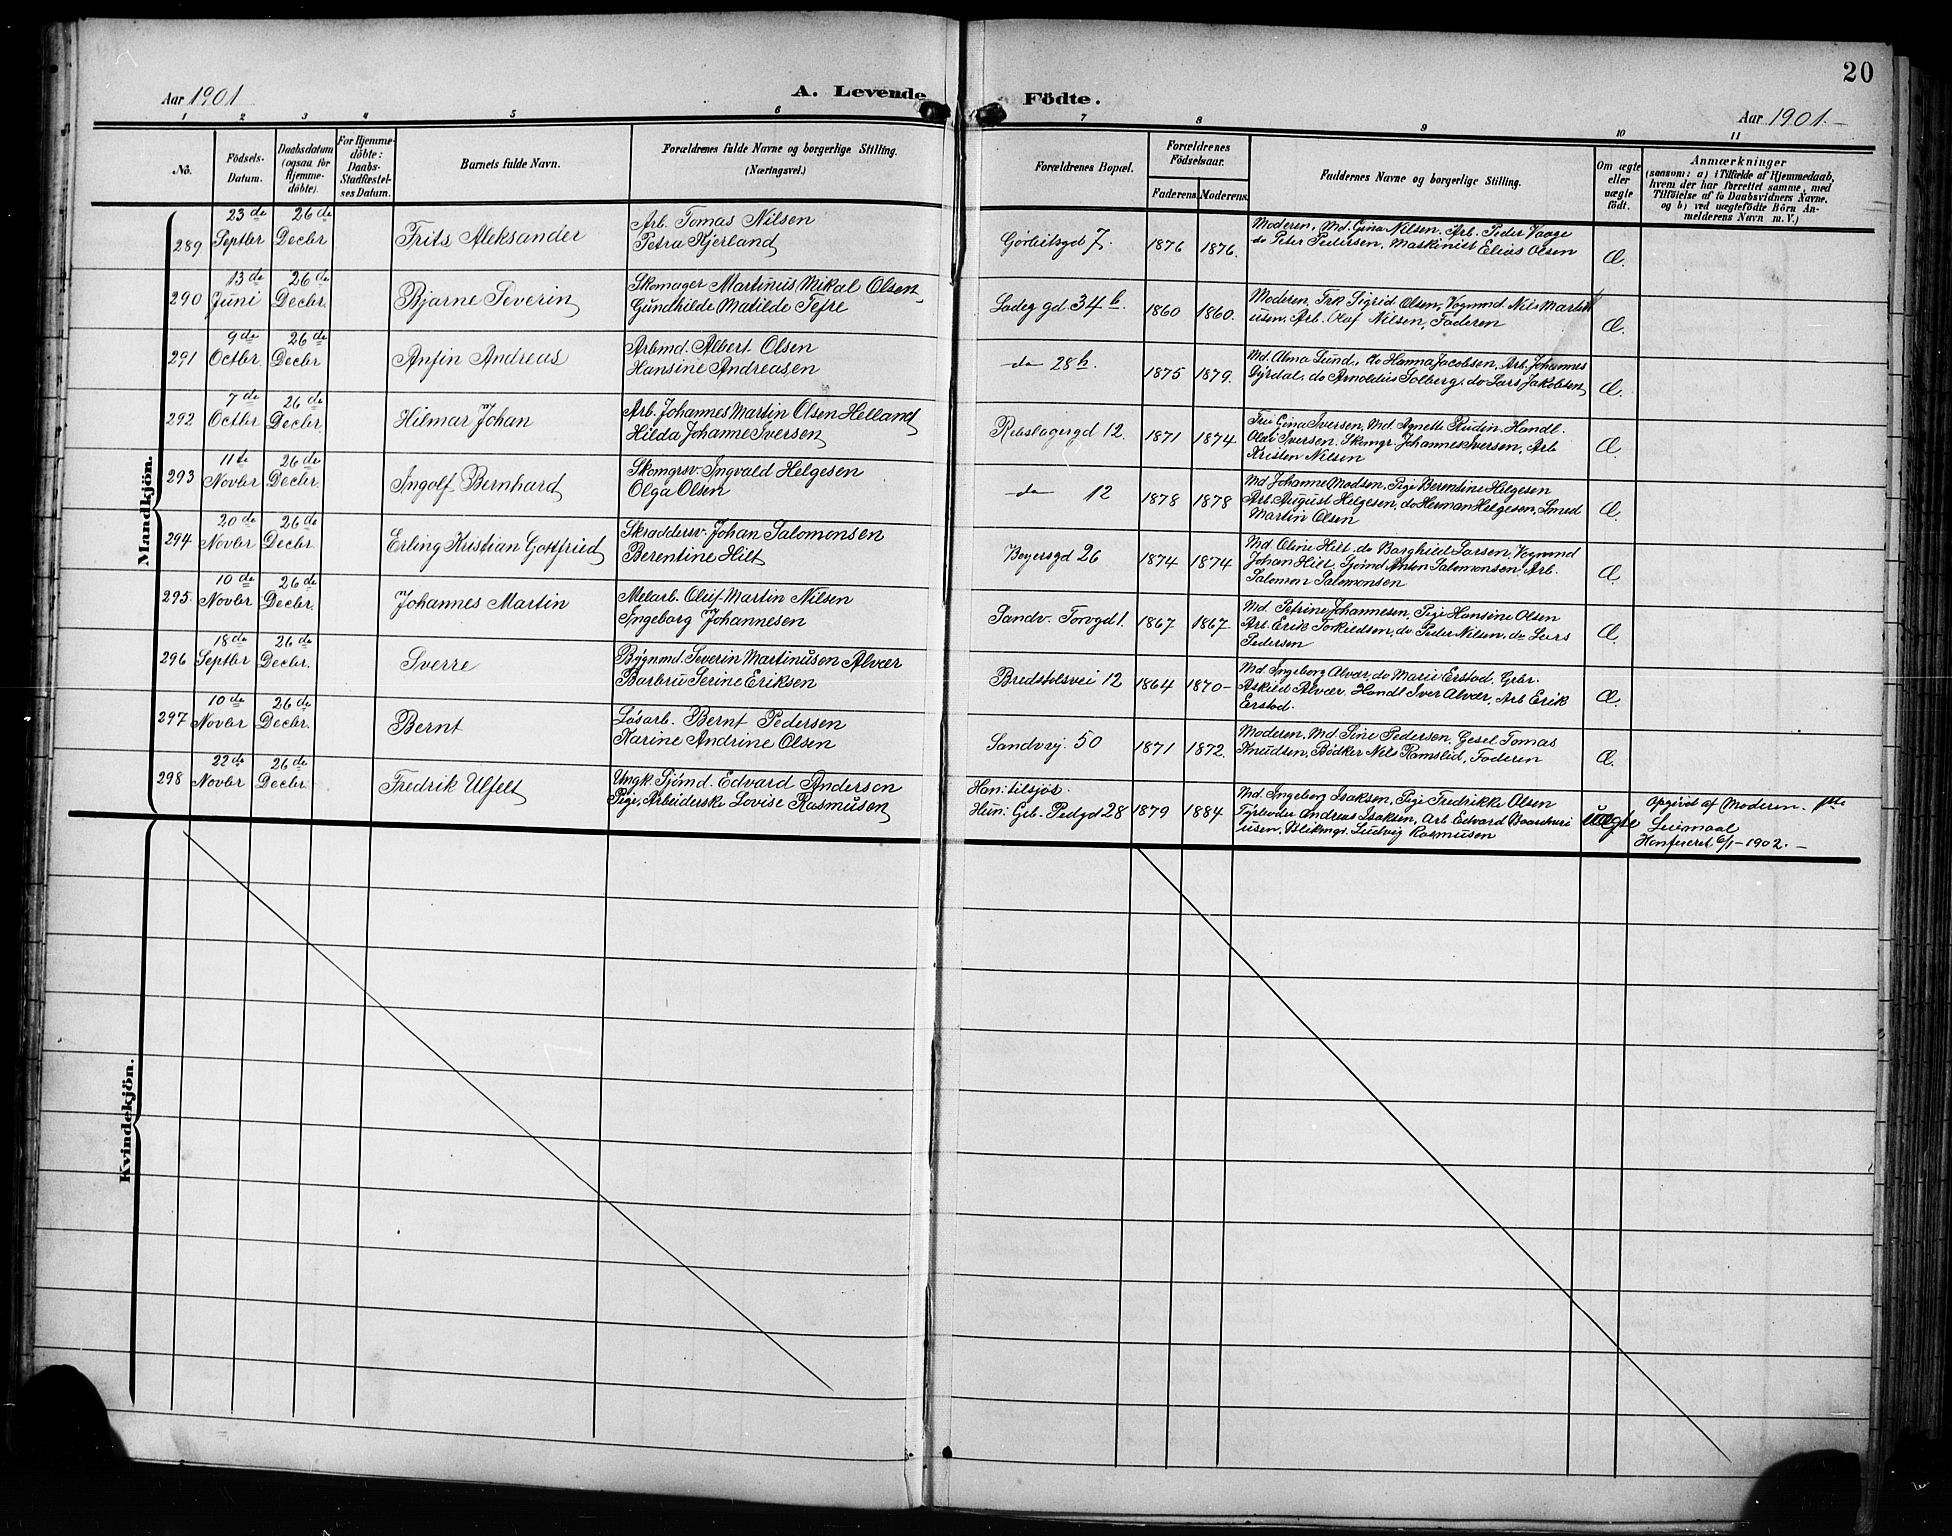 20
Aar 1901
A. Levende
Födte.
Aar 1901.-
1 2 3 4 5 6 7 8 9 10 11
Nö.
Födsels-
Datum.
Daabsdatum
(ogsaa for
Hjemme-
döbte).
For Hjemme-
döbte:
Daabs-
Stadfæstel-
ses Datum.
Barnets fulde Navn.
Forældrenes fulde Navne og borgerlige Stilling.
(Næringsvei.)
Forældrenes Bopæl.
Forældrenes
Födselsaar.
Faderens. Moderens.
Faddernes Navne og borgerlige Stilling.
Om ægte
eller
uægte
födt.
Anmærkninger
(saasom: a) i Tilfælde af Hjemmedaab,
hvem der har forrettet samme, med
Tilföielse af to Daabsvidners Navne,
og b) ved uægtefödte Börn An-
melderens Navn m. V.)
Mandkjön.
289 23de Septbr 26de Decbr Frits Aleksander
Arb. Tomas Nilsen
Petra Kjerland
Gørbeitsgd 7. 1876 1876.
Moderen, Md. Gina Nilsen, Arb. Peder Vaage
do Peter Pedersen, Maskinist Elias Olsen
Æ.
290 13de Juni 26de Decbr. Bjarne Severin
Skomager Martinus Mikal Olsen
Gundhilde Matilde Tefre
Ladeg gd 34 b. 1860 1860.
Moderen, Frk Sigrid Olsen, Vognmd Nils Martin
usen, Arb. Olaf Nilsen, Faderen
Æ.
291 9de Octbr. 26de Decbr Anfin Andreas
Arbmd. Albert Olsen
Hansine Andreasen
do 28 b. 1875 1879.
Md. Alma Lund, do Hanna Jacobsen, Arb. Johannes
Dyrdal, do Arnoldus Solberg, do Lars Jakobsen
Æ.
292 7de Octbr 26de Decbr. Hilmar Johan
Arb. Johannes Martin Olsen Helland
Hilda Johanne Iversen
Rebslagergd 12. 1871 1874.
Frk Gina Iversen, Md. Agnette Rudin, Handl.
Olai Iversen, Skomgr. Johannes Iversen, Arb
Kristen Nilsen
Æ.
293 11te Novbr 26de Decbr. Ingolf Bernhard
Skomgrsv. Ingvald Helgesen
Olga Olsen
do 12 1878 1878
Md Johanne Madsen, Pige Berentine Helgesen
Arb. August Helgesen, do Herman Helgesen, Smed
Martin Olsen
Æ.
294 20de Novbr 26de Decbr. Erling Kristian Gottfried
Skræddersv. Johan Salomonsen
Berentine Hilt
Bøyersgd 26 1874 1874
Md. Oline Hilt, do Borghild Larsen, Vognmd
Johan Hilt, Sjømd Anton Salomonsen, Arb.
Salomon Salomonsen
Æ.
295. 10de Novbr 26de Decbr. Johannes Martin
Melarb. Oluf Martin Nilsen
Ingeborg Johannesen
Sandv. Torvgd 1. 1867 1867
Md. Petrine Johannesen, Pige Hansine Olsen
Arb. Erik Torkildsen, do Peder Nilsen, do Lars
Pedersen
Æ.
296 18de Septbr 26de Decbr. Sverre
Bygnmd. Severin Martinusen Alvær
Barbru Serine Eriksen
Bredstolsvei 12 1864 1870-
Md. Ingeborg Alvær, do Marie Erstad, Grbr.
Askild Alvær, Handl Iver Alvær, Arb Erik
Erstad.
Æ.
297 10de Novbr 26de Decbr. Bernt
Løsarb. Bernt Pedersen
Karine Andrine Olsen
Sandvvj. 50 1871 1872.
Moderen, Md. Sine Pedersen, Gesel Tomas
Knudsen, Bødker Nils Ramslid, Faderen
Æ.
298 22de Novbr 26de Decbr. Fredrik Ulfelt
Ungk. Sjömd. Edvard Anderson
Pige, Arbeiderske Lovise Rasmusen
Han: tilsjøs.
Hun: Geb. Pedgd 28 1879 1884
Md. Ingeborg Isaksen, Pige Fredrikke Olsen
Fyrbøder Andreas Isaksen, Arb Edvard
usen, Blikmgr. Ludvig Rasmusen
uægte
Opgivet af Moderen. 1ste
Leiermaal
6/1-1902.-
Kvindekjön.